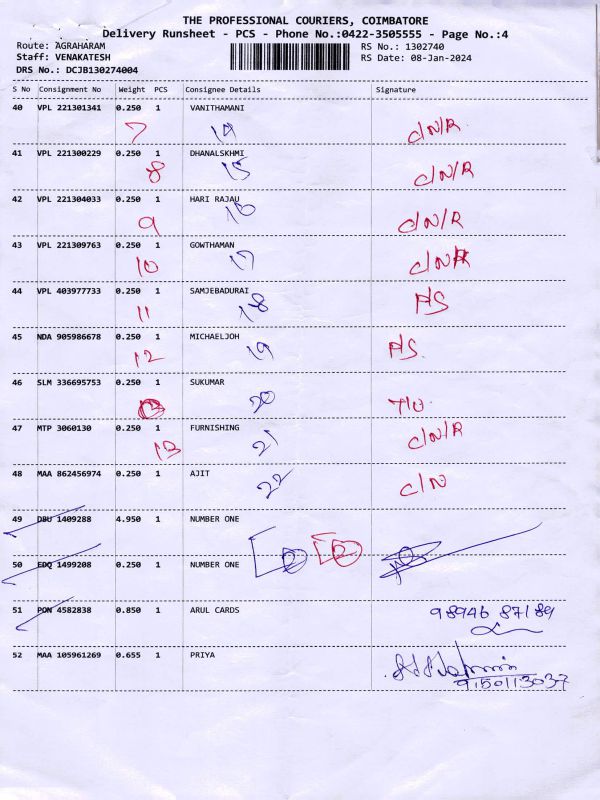 THE PROFESSIONAL COURIERS, COIMBATORE
Delivery Runsheet - PCS - Phone No.:0422-3505555 - Page No.:4
Route: AGRAHARAM RS No.: 1302740
Staff: VENAKATESH RS Date: 08-Jan-2024
DRS No.: DCJB130274004
S No Consignment No Weight PCS Consignee Details Signature
40 VPL 221301341 0.250 1 VANITHAMANI
7 14 C/N/R
41 VPL 221300229 0.250 1 DHANALSKHMI
8 15 C/N/R
42 VPL 221304033 0.250 1 HARI RAJAU
9 16 C/N/R
43 VPL 221309763 0.250 1 GOWTHAMAN
10 17 C/N/R
44 VPL 403977733 0.250 1 SAMJEBADURAI
11 18 A/S
45 NDA 905986678 0.250 1 MICHAELJOH
12 19 A/S
46 SLM 336695753 0.250 1 SUKUMAR
13 20
47 MTP 3060130 0.250 1 FURNISHING
13 21 C/N/R
48 MAA 862456974 0.250 1 AJIT
22 C/N
49 DBU 1409288 4.950 1 NUMBER ONE
2 2
50 EDQ 1499208 0.250 1 NUMBER ONE
51 PON 4582838 0.850 1 ARUL CARDS
98946 87189
52 MAA 105961269 0.655 1 PRIYA
9150113037